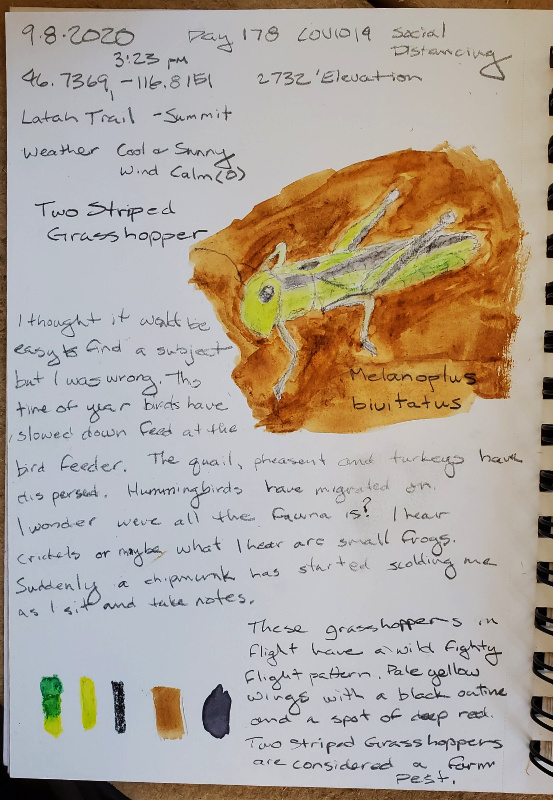 9.8.2020 Day 178 COVID19 Social Distancing
3:23 pm
46.7369, -116.8151 2732' Elevation
Latah Trail - Summit
Weather Cool & Sunny
Wind Calm (0)
Two Striped
Grasshopper
I thought it would be
easy to find a subject
but I was wrong. This
time of year birds have
slowed down feed at the
bird feeder. The quail, pheasent and turkeys have
dispersed. Hummingbirds have migrated on.
I wonder were all the fauna is? I hear
crickets or maybe what I hear are small frogs.
Suddenly a chipmunk has started scolding me
as I sit and take notes.
Melanoplus
bivitatus
These grasshoppers in
flight have a wild fighty
flight pattern. Pale yellow
wings with a black outine
and a spot of deep red.
Two Striped Grasshoppers
are considered a farm
pest.